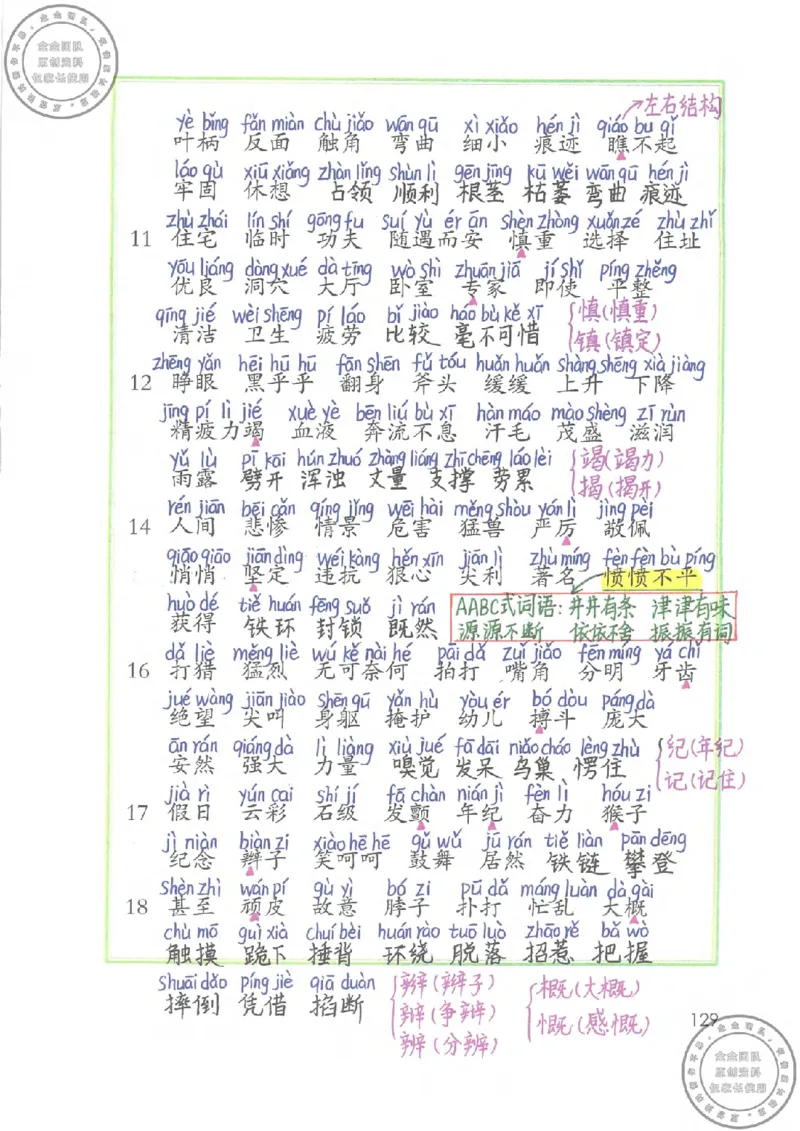 企企团队
原创资料
仅家长使用
→左右结构
yè bǐng fǎn miàn chù jiǎo wān qū xì xiǎo hén jì qiáo bu qǐ
叶柄 反面 触角 弯曲 细小 痕迹 瞧不起
láo gù xiū xiǎng zhàn lǐng shùn lì gēn jīng kū wěi wān qū hén jì
牢固 休想 占领 顺利 根茎 枯萎 弯曲 痕迹
zhù zhái lín shí gōng fu suí yù ér ān shèn zhòng xuǎn zé zhù zhǐ
11 住宅 临时 功夫 随遇而安 慎重 选择 住址
yōu liáng dòng xué dà tīng wò shì zhuān jiā jí shǐ píng zhěng
优良 洞穴 大厅 卧室 专家 即使 平整
qīng jié wèi shēng pí láo bǐ jiào háo bù kě xī
清洁 卫生 疲劳 比较 毫不可惜
慎(慎重)
镇(镇定)
zhēng yǎn hēi hū hū fān shēn fǔ tóu huǎn huǎn shàng shēng xià jiàng
12 睁眼 黑乎乎 翻身 斧头 缓缓 上升 下降
jīng pí lì jié xuè yè bēn liú bù xī hàn máo mào shèng zī rùn
精疲力竭 血液 奔流不息 汗毛 茂盛 滋润
yǔ lù pī kāi hún zhuó zhàng liáng zhī chēng láo lèi
雨露 劈开 浑浊 丈量 支撑 劳累
竭(竭力)
揭(揭开)
rén jiān bēi cǎn qíng jǐng wēi hài měng shòu yán lì jìng pèi
14 人间 悲惨 情景 危害 猛兽 严厉 敬佩
qiāo qiāo jiān dìng wéi kàng hěn xīn jiān lì zhù míng fèn fèn bù píng
悄悄 坚定 违抗 狠心 尖利 著名 愤愤不平
huò dé tiě huán fēng suǒ jì rán
获得 铁环 封锁 既然
AABC式词语:井井有条 津津有味
源源不断 依依不舍 振振有词
dǎ liè měng liè wú kě nài hé pāi dǎ zuǐ jiǎo fēn míng yá chǐ
16 打猎 猛烈 无可奈何 拍打 嘴角 分明 牙齿
jué wàng jiān jiào shēn qū yǎn hù yòu ér bó dòu páng dà
绝望 尖叫 身躯 掩护 幼儿 搏斗 庞大
ān rán qiáng dà lì liàng xiù jué fā dāi niǎo cháo lèng zhù
安然 强大 力量 嗅觉 发呆 鸟巢 愣住
纪(年纪)
记(记住)
jià rì yún cai shí jí fā chàn nián jì fèn lì hóu zi
17 假日 云彩 石级 发颤 年纪 奋力 猴子
jì niàn biàn zi xiào hē hē gǔ wǔ jū rán tiě liàn pān dēng
纪念 辫子 笑呵呵 鼓舞 居然 铁链 攀登
shèn zhì wán pí gù yì bó zi pū dǎ máng luàn dà gài
18 甚至 顽皮 故意 脖子 扑打 忙乱 大概
chù mō guì xià chuí bèi huán rào tuō luò zhāo rě bǎ wò
触摸 跪下 捶背 环绕 脱落 招惹 把握
shuāi dǎo píng jiè qiā duàn
摔倒 凭借 掐断
辫(辫子)
辩(争辩)
辨(分辨)
概(大概)
慨(感慨)
129
企企团队
原创资料
仅家长使用